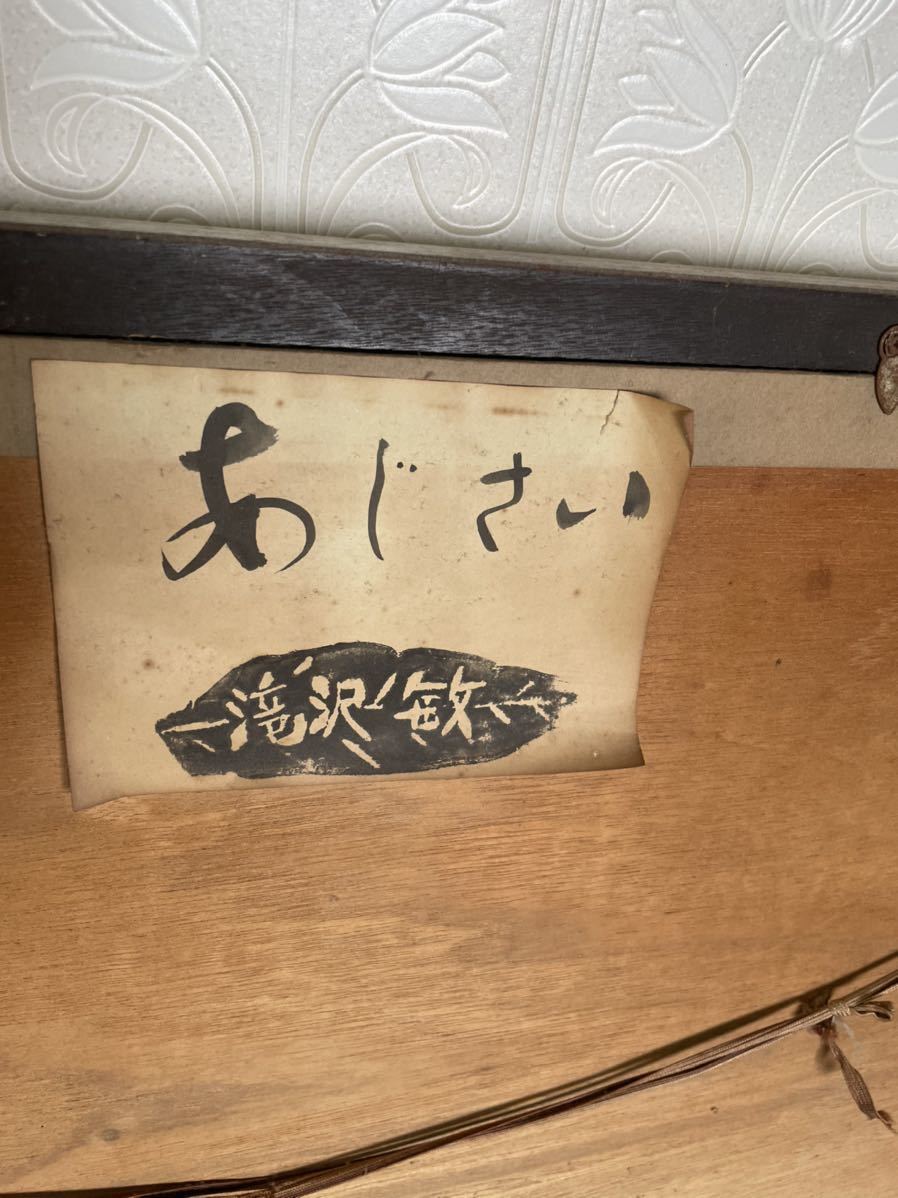 あじさい
滝沢敏